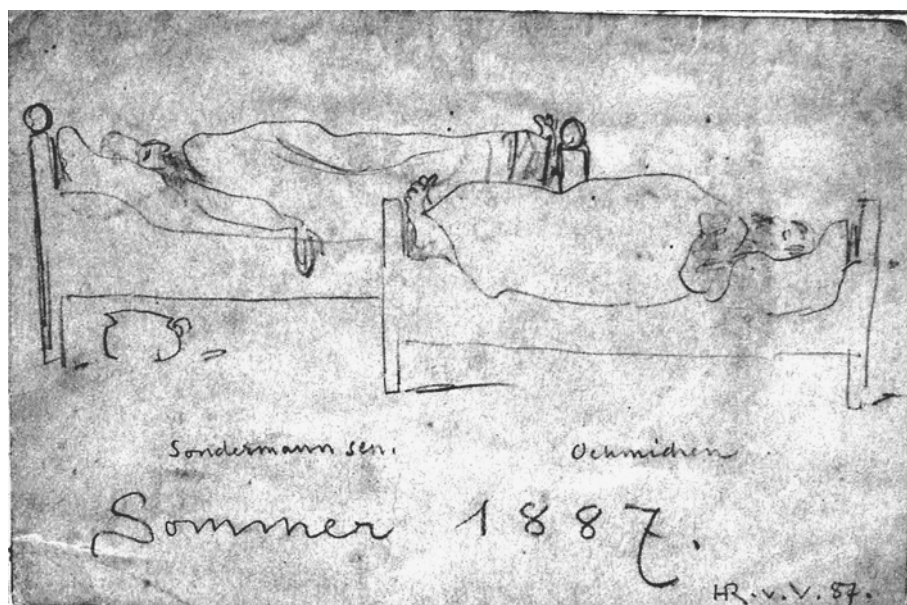 Sondermann sen. Oehmichen
Sommer 1887.
HR. v. V. 87.